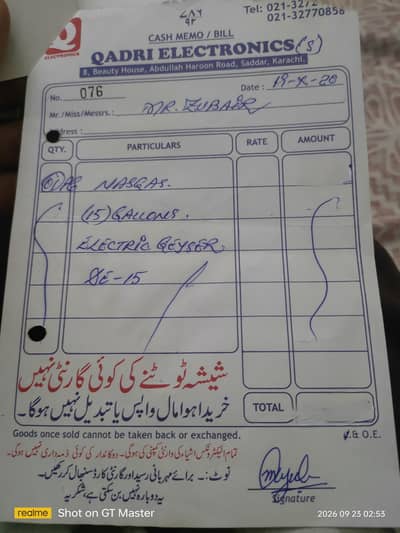 ۷۸۶
۹۲
Tel: 021-3272
021-32770856
CASH MEMO / BILL
Q
ELECTRONICS
QADRI ELECTRONICS (S)
8, Beauty House, Abdullah Haroon Road, Saddar, Karachi.
No. 076
Date: 19-X-20
Mr./Miss/Messrs.: MR. ZUBAIR
Address:
QTY. PARTICULARS RATE AMOUNT
NASGAS.
(15) GALLONS.
ELECTRIC GEYSER
SE-15
شیشہ ٹوٹنے کی کوئی گارنٹی نہیں
خریدا ہوا مال واپس یا تبدیل نہیں ہوگا۔
TOTAL
Goods once sold cannot be taken back or exchanged.
E. & O.E.
تمام الیکٹرونکس اشیاء کی وارنٹی کمپنی کی ہوگی۔ دوکاندار کی کوئی ذمہ داری نہیں ہوگی۔
نوٹ:۔ برائے مہربانی رسید اور گارنٹی کارڈ سنبھال کر رکھیں۔
یہ دوبارہ نہیں بن سکتی ہے، شکریہ
Signature
realme Shot on GT Master
2026 09 23 02:53